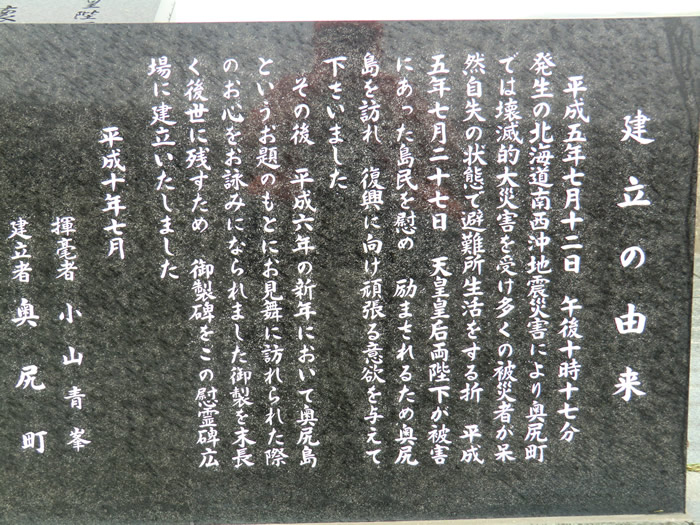 建立の由来
平成五年七月十二日　午後十時十七分
発生の北海道南西沖地震災害により奥尻町
では壊滅的大災害を受け多くの被災者が呆
然自失の状態で避難所生活をする折　平成
五年七月二十七日　天皇皇后両陛下が被害
にあった島民を慰め　励まされるため奥尻
島を訪れ　復興に向け頑張る意欲を与えて
下さいました
その後　平成六年の新年において奥尻島
というお題のもとにお見舞に訪れられた際
のお心をお詠みになられました御製を末長
く後世に残すため　御製碑をこの慰霊碑広
場に建立いたしました
平成十年七月
揮毫者　小山青峯
建立者　奥尻町